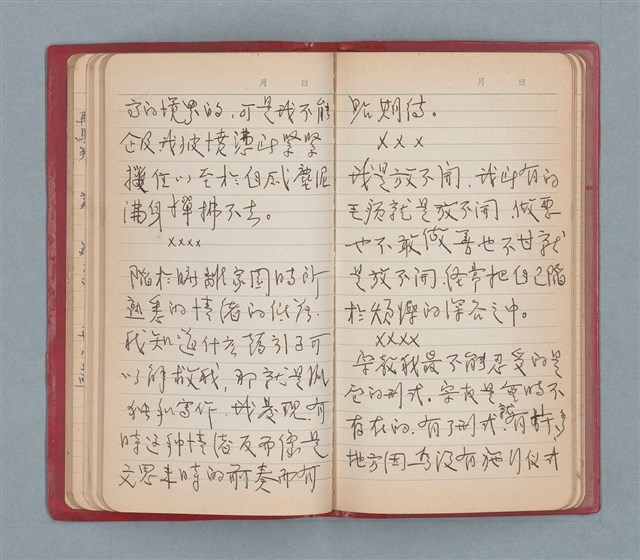 月 日
方的境界的，可是我不能
企及我被憤懣所緊緊
攫住以至於自感塵泥
滿身揮拂不去。
××××
陷於瞬離家園時所
熟悉的情緒的低落.
我知道什麼藥引子可
以解救我，那就是孤
独和寫作，我發現，有
時这种情緒反而像是
文思来時的前奏而有
月 日
點期待。
×××
我是放不開，我所有的
毛病就是放不開，做惡
也不敢做善也不甘就
是放不開，经常把自己陷
於煩燥的深谷之中。
××××
宗教我最不能忍受的是
它的形式。宗教是無時不
存在的，有了形式就有許多
地方因為沒有施行仪式